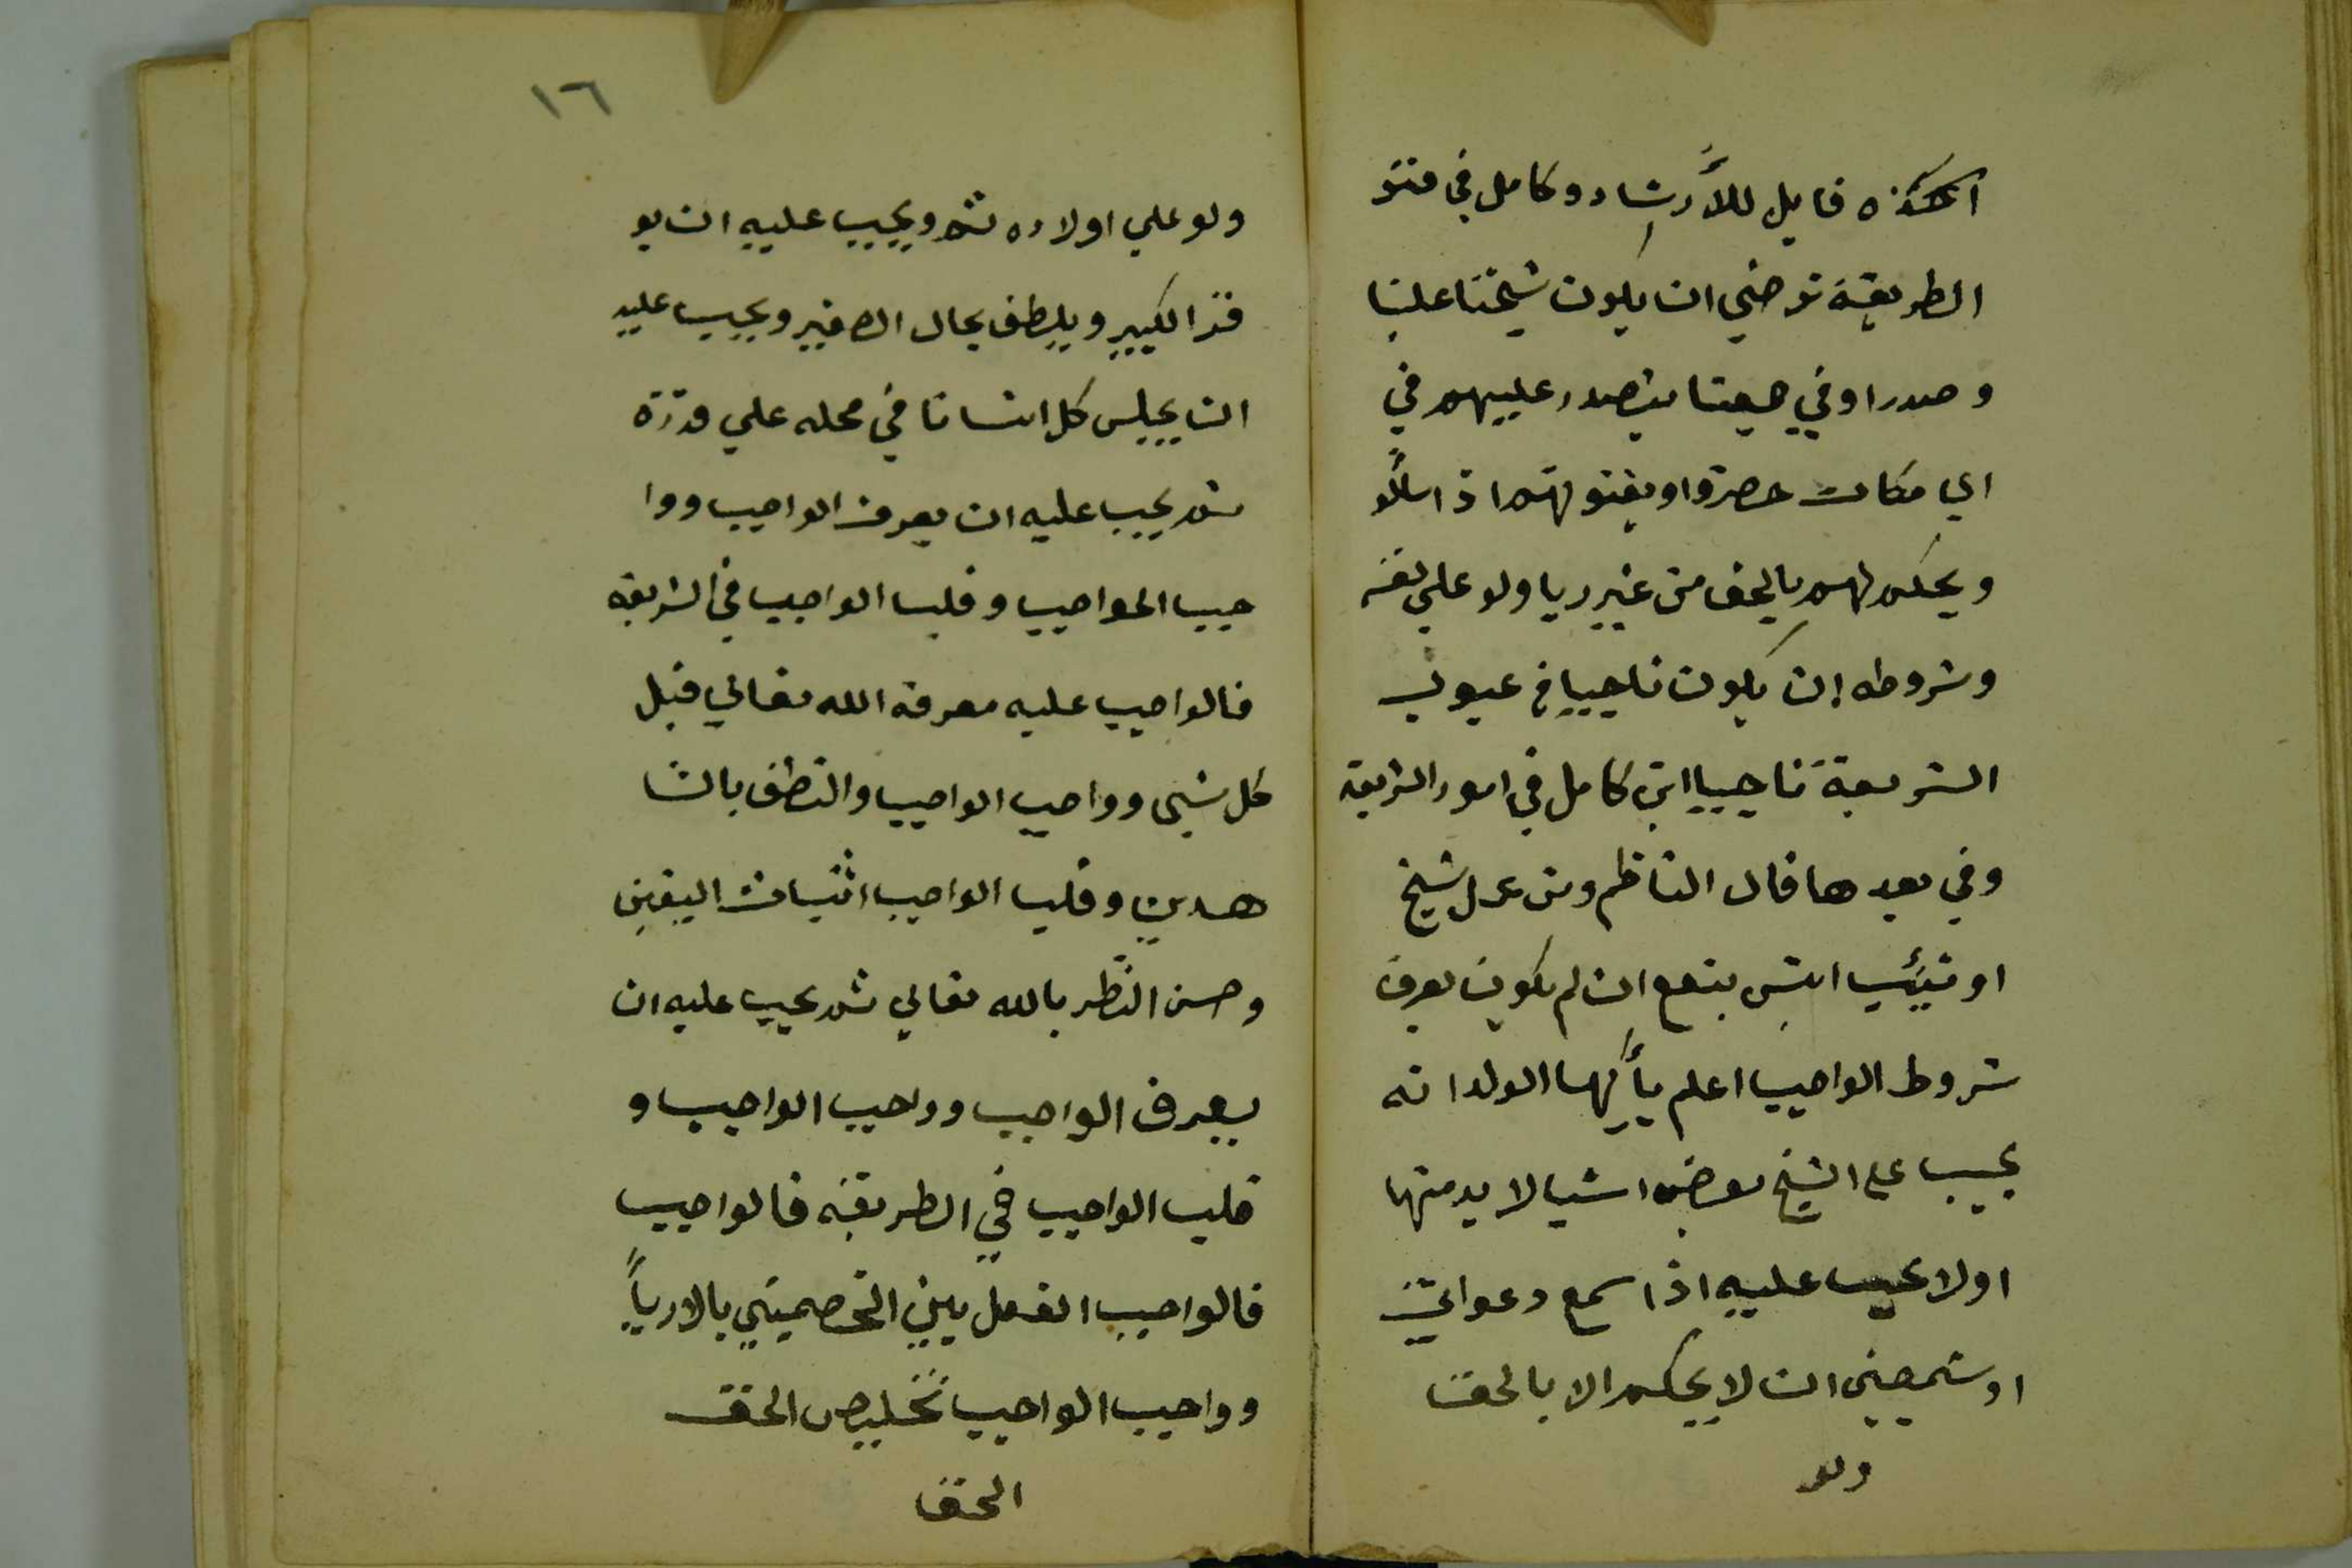 قايل للأرشاد وكامل في فتو
الطريقة ترضي ان يكون شيخنا علينا
وصدرا وفي يتصدر عليهم في
اي مكان حضرة او يفتو لهم اذا سألو
ويحكم لهم بالحق من غير ريا ولو علي نفسه
وشروطه ان يكون ناجيا في عيون
الشريعة ناجيا اي كامل في امور الشريعة
وفي بعدها قال الناظم ومن عمل شيخ
او نقيب ايش ينفع ان لم يكون يعرف
شروط الواجب اعلم يأيها الولد انه
يجب على الشيخ بعض اشيا لا بد منها
اولا يجب عليه اذا سمع دعواتين
او ان لا يحكم الا بالحق
ولو
١٦
ولو علي اولاده ثم ويجيب عليه ان يو
قر الكبير ويلطف بحال الصغير ويجيب عليه
ان يجلس كل انسانا في محله علي قدره
ثم يجيب عليه ان يعرف الواجيب ووا
جيب الواجيب وقلب الواجيب في الشريعة
فالواجيب عليه معرفة الله تعالي قبل
كل شيء وواجيب الواجيب والنطق بالشا
هدين وقلب الواجيب اثبات اليقين
وحسن النظر بالله تعالي ثم يجيب عليه ان
يعرف الواجب وواجيب الواجيب و
قليب الواجيب في الطريقة فالواجيب
فالواجيب الفصل بين الخصمين بالاريا
وواجيب الواجيب تخليص الحق
الحق